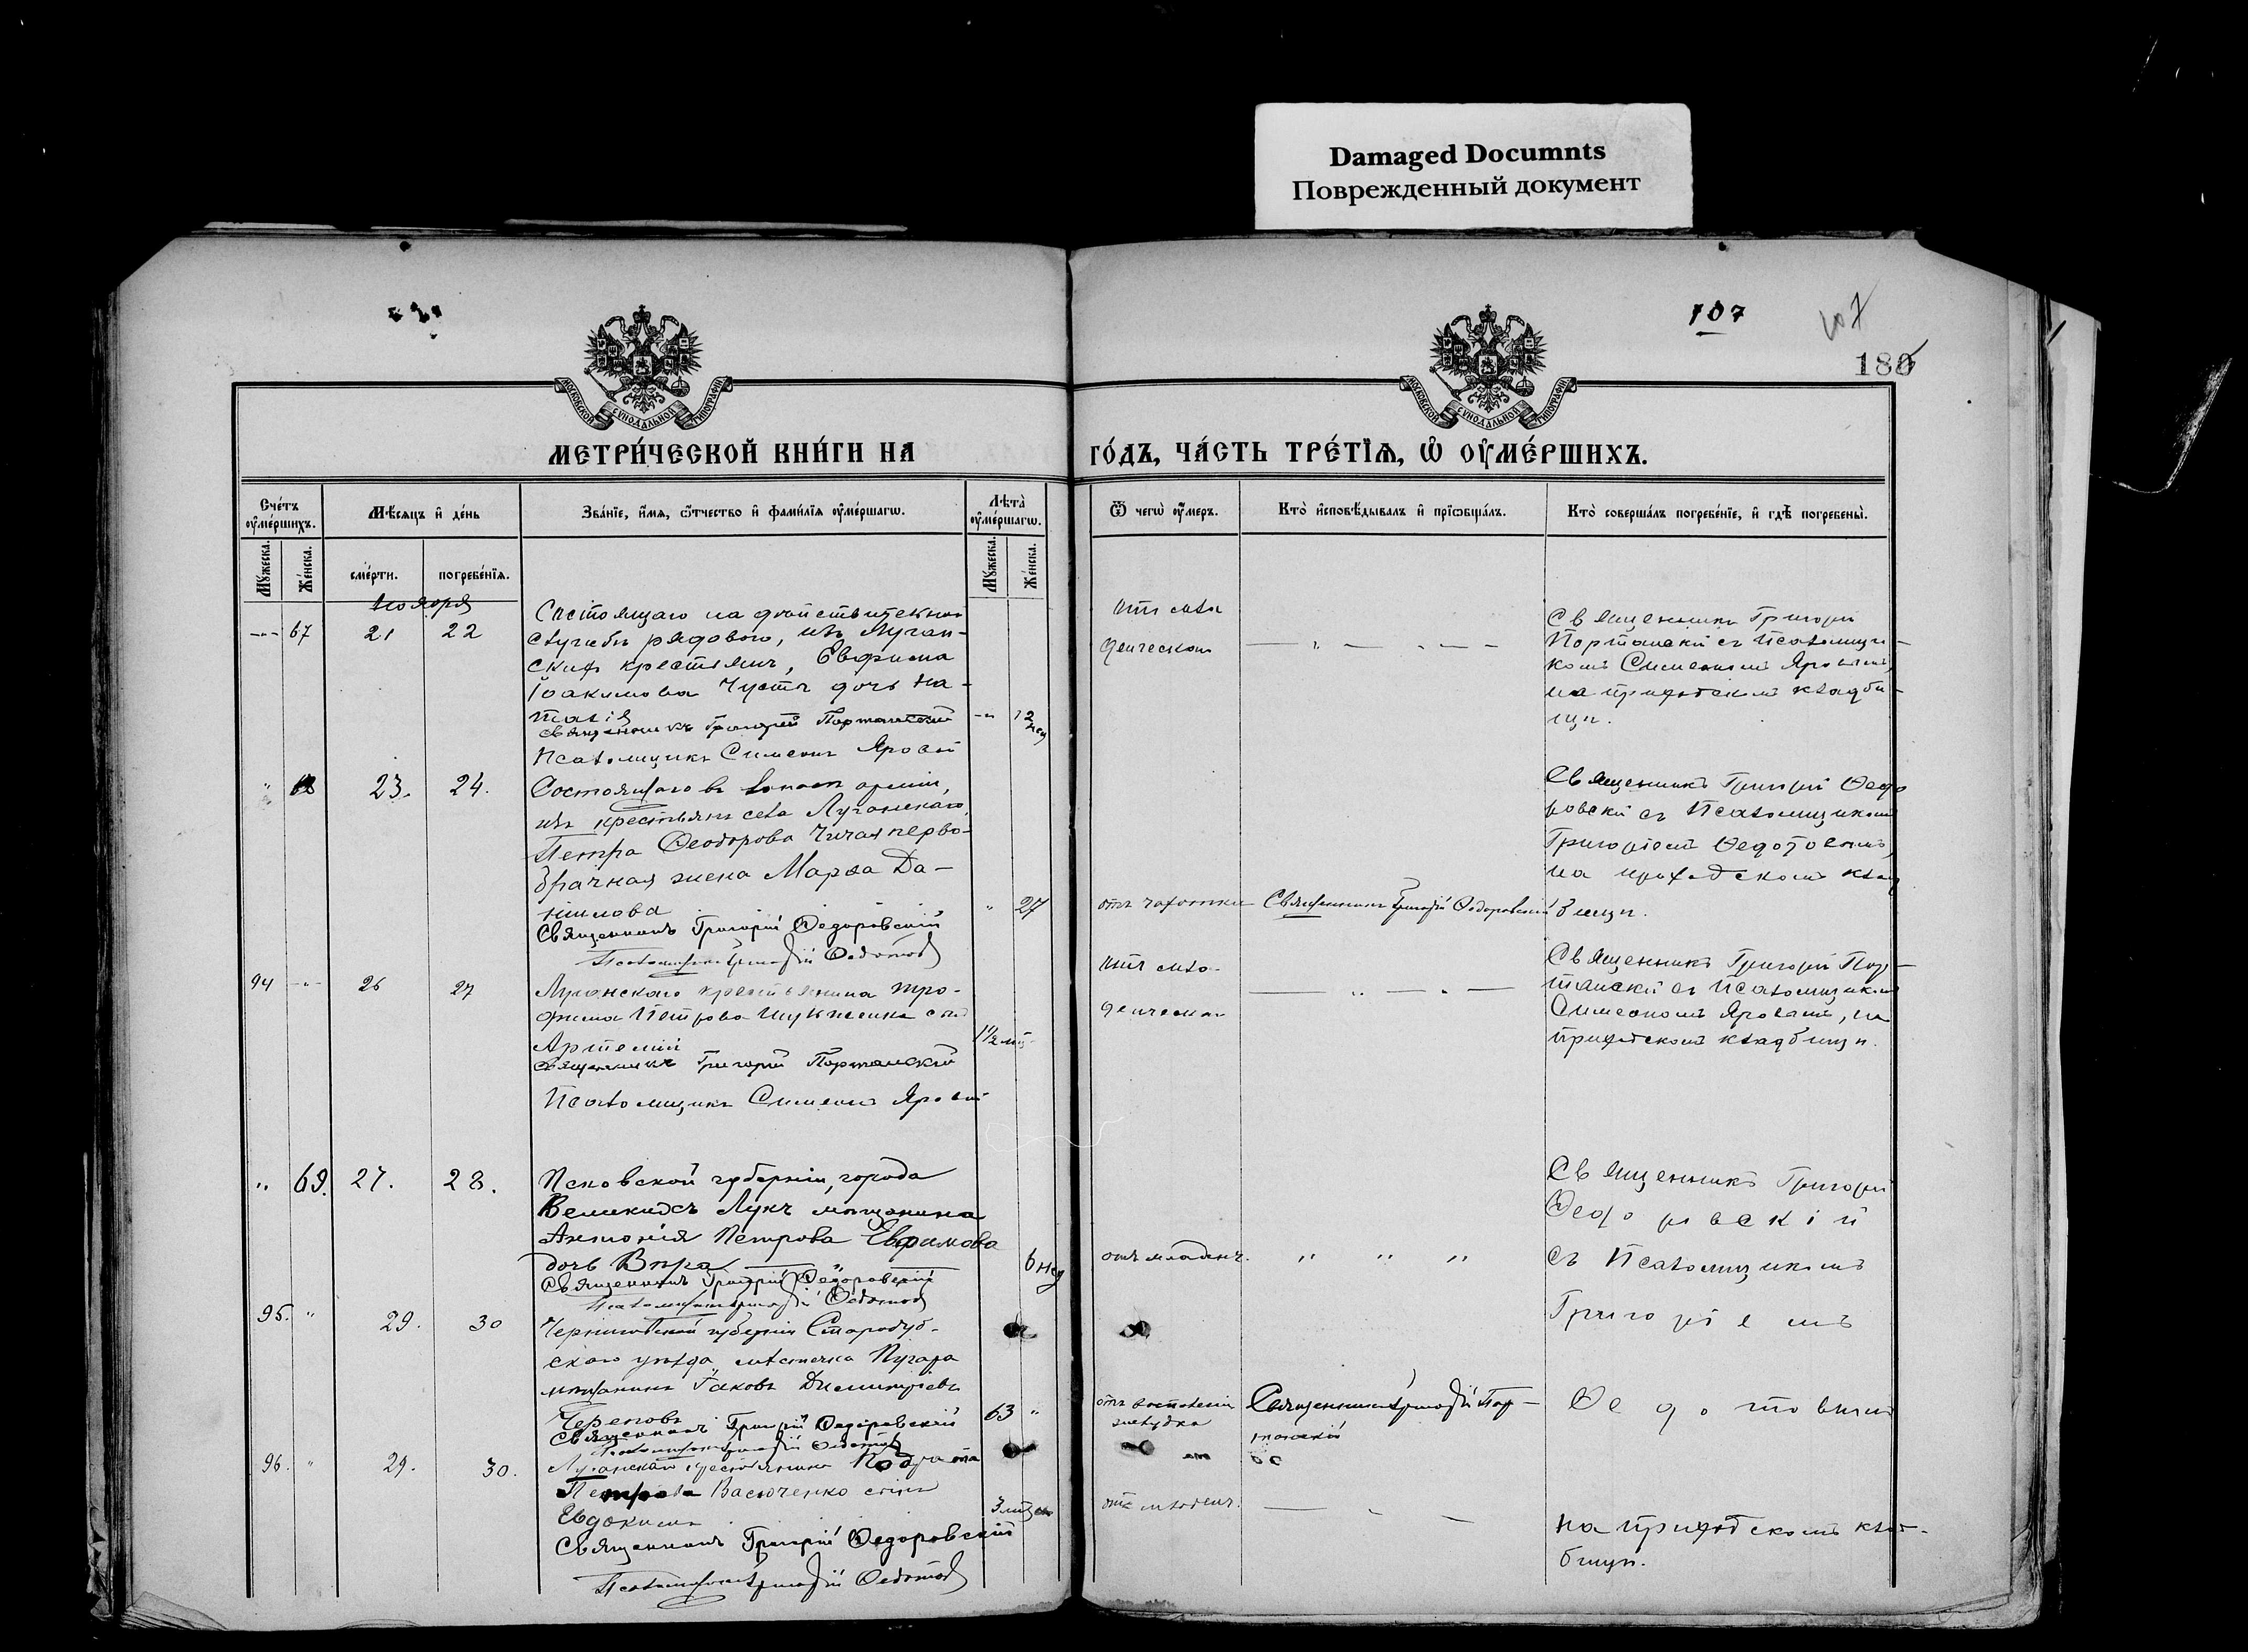 Damaged Documnts
Поврежденный документ
107
107
180
МОСКОВСКОЙ СѴНОДАЛЬНОЙ ТИПОГРАФІИ
МОСКОВСКОЙ СѴНОДАЛЬНОЙ ТИПОГРАФІИ
МЕТРИ́ЧЕСКОЙ КНИ́ГИ НА
ГО́ДЪ, ЧА́СТЬ ТРЕ́ТІѦ, Ѡ ОУМЕ́РШИХЪ.
Сче́тъ оумершихъ.
Мѣсяцъ и де́нь
Зва́ніе, и́мя, ѻтчество и фами́лія оумершагѡ.
Лѣта̀ оумершагѡ.
Мꙋжеска.
Же́нска.
сме́рти.
погребе́нїѧ.
Мꙋжеска.
Же́нска.
Ѿ чегѡ̀ оумеръ.
Кто̀ исповѣдывалъ и прїѡбща́лъ.
Кто̀ соверша́лъ погребе́нїе, и гдѣ̀ погребены̀.
ноября
67
21
22
Состоящаго на дѣйствительной
службѣ рядового, изъ Луган-
скихъ крестьянъ, Евфима
Іоакимова Чуста дочь На-
талія
12 нед
Священникъ Григорій Портанскій
Псаломщикъ Симеонъ Яровый
отъ мла
денческой
Священникъ Григорій
Портанскій съ Псаломщи-
комъ Симеономъ Яровымъ,
на приходскомъ кладби-
щѣ.
68
23.
24.
Состоящаго въ запасѣ арміи,
изъ крестьянъ села Луганскаго,
Петра Ѳеодорова перво-
брачная жена Марѳа Да-
нилова
27
Священникъ Григорій Ѳедоровскій
Псаломщикъ Григорій Ѳедотовъ
отъ чахотки
Священникъ Григорій Ѳедоровскій
Священникъ Григорій Ѳедо
ровскій съ Псаломщикомъ
Григоріемъ Ѳедотовымъ,
на приходскомъ клад
бищѣ.
94
26
27
Луганскаго крестьянина Тро-
фима Петрова сынъ
Артемій
1½ мѣ
Священникъ Григорій Портанскій
Псаломщикъ Симеонъ Яровый
отъ мла-
денческой
Священникъ Григорій Пор-
танскій съ Псаломщикомъ
Симеономъ Яровымъ, на
приходскомъ кладбищѣ.
69.
27.
28.
Псковской губерніи, города
Великихъ Лукъ мѣщанина
Антонія Петрова Ефимова
дочь Вѣра
6 нед
Священникъ Григорій Ѳедоровскій
Псаломщикъ Григорій Ѳедотовъ
отъ младенч.
Священникъ Григорій
Ѳедоровскій
съ Псаломщикомъ
Григоріемъ
Ѳедотовымъ
на приходскомъ клад-
бищѣ.
95.
29.
30
Черниговской губерніи Стародуб-
скаго уѣзда, мѣстечка
мѣщанинъ Іаковъ Димитріевъ
Череповъ
63
Священникъ Григорій Ѳедоровскій
Псаломщикъ Григорій Ѳедотовъ
отъ воспаленія
желудка
Священникъ Григорій Пор-
танскій
96.
29.
30.
Луганскаго крестьянина Кодрата
Петрова Васюченко сынъ
Евдокимъ
3 мѣсяц
Священникъ Григорій Ѳедоровскій
Псаломщикъ Григорій Ѳедотовъ
отъ младенч.